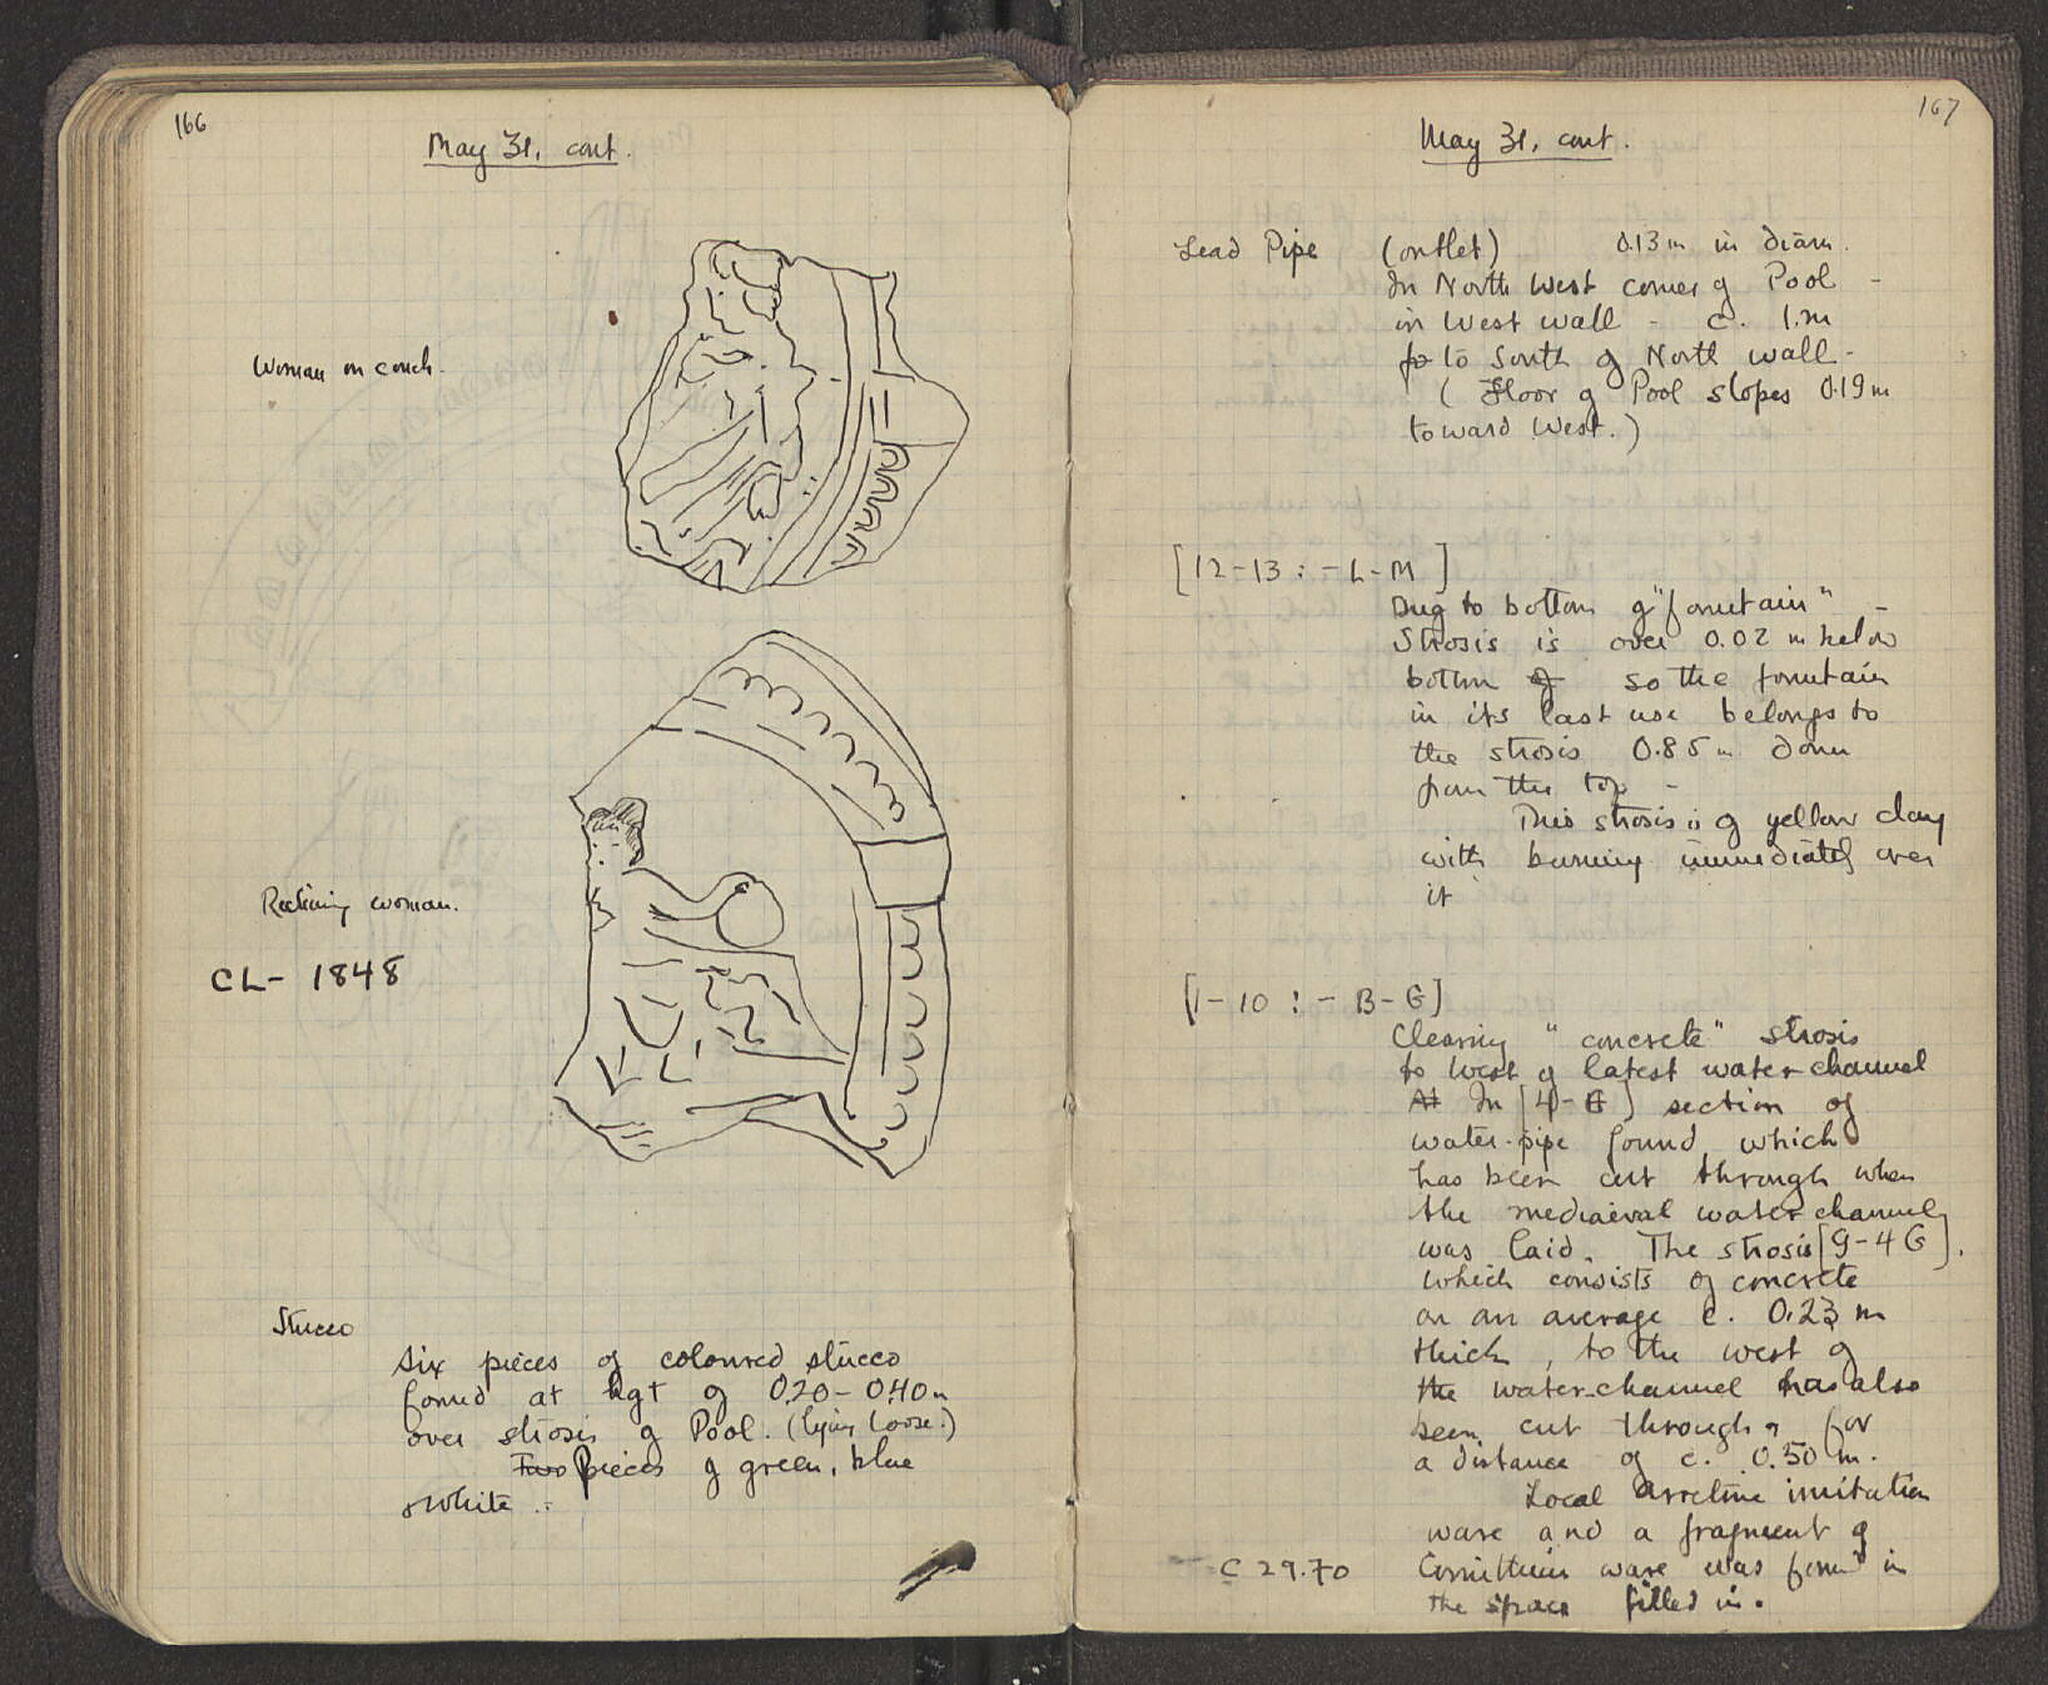 166
May 31, cont.
Woman on couch.
Reclining woman.
CL- 1848
Stucco
six pieces of coloured stucco
found at hgt of 0.20 - 0.40 m
over strosis of Pool. (lying loose.)
Two pieces of green, blue
& white .-
167
May 31, cont.
Lead Pipe (outlet) 0.13 m in diam.
In North West corner of Pool -
in West wall - c. 1. m
to South of North wall -
( Floor of Pool slopes 0.19 m
toward West. )
[12-13 : - L - M ]
Dug to bottom of "fountain" -
Strosis is over 0.02 m below
bottom of so the fountain
in its last use belongs to
the strosis 0.85 m down
from the top -
This strosis is of yellow clay
with burning immediately over
it
[1- 10 : - B - G]
Clearing "concrete" strosis
to West of latest water-channel
At In [4-G] section of
water-pipe found, which
has been cut through when
the mediaeval water channel
was laid. The strosis [9-4 G].
which consists of concrete
on an average c. 0.23 m
thick, to the west of
the water-channel has also
been cut through, for
a distance of c. 0.50 m.
Local Arretine imitation
ware and a fragment of
C 29.70 Corinthian ware was found in
the space filled in.